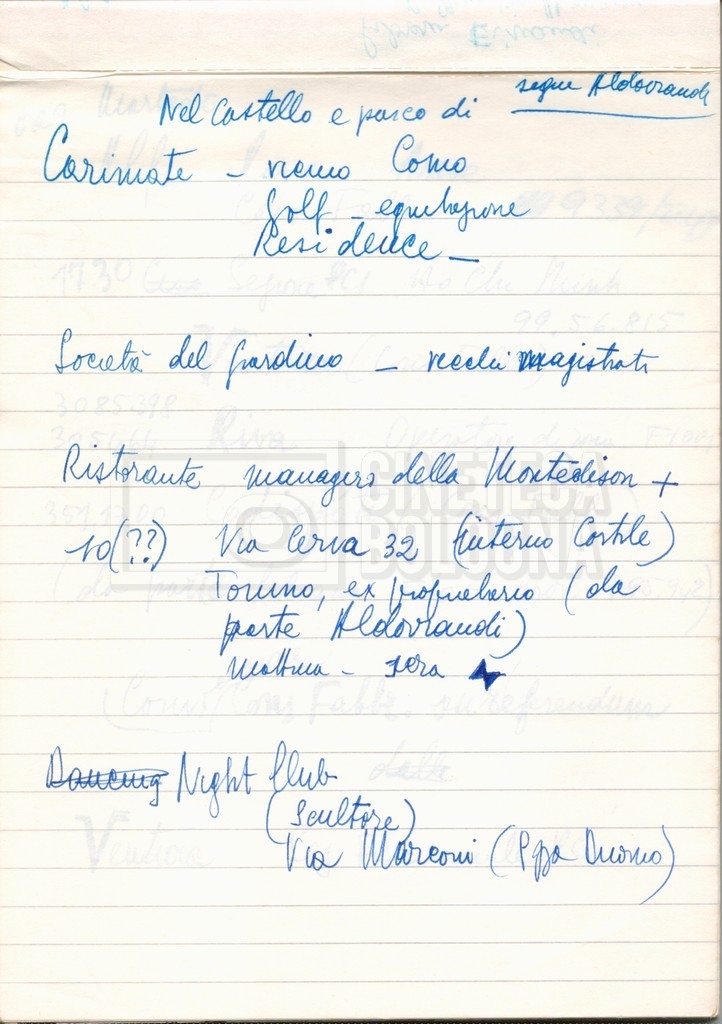 segue Aldovrandi
Nel Castello e parco di
Carimate – vicino Como
Golf – equitazione
Residence –
Società del giardino – vecchi magistrati
Ristorante managers della Montedison +
10 (??) Via Cerva 32 (interno Cortile)
Torino, ex proprietario (da
parte Aldovrandi)
mattina – sera
Dancing Night Club
(Scultore)
Via Marconi (Pzza Duomo)
CINETECA
BOLOGNA